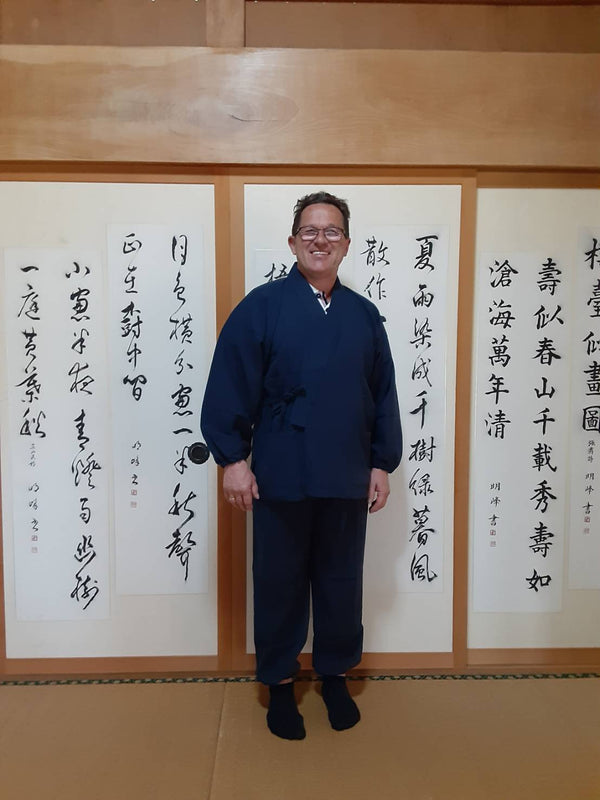 臺似畫圖
明峰書
壽似春山千載秀壽如
滄海萬年清
明峰書
夏雨染成千樹綠暮風
散作
月色橫分窓一半秋聲
正在樹中間
明峰書
小窓半夜青燈雨幽樹
一庭黃葉秋
明峰書